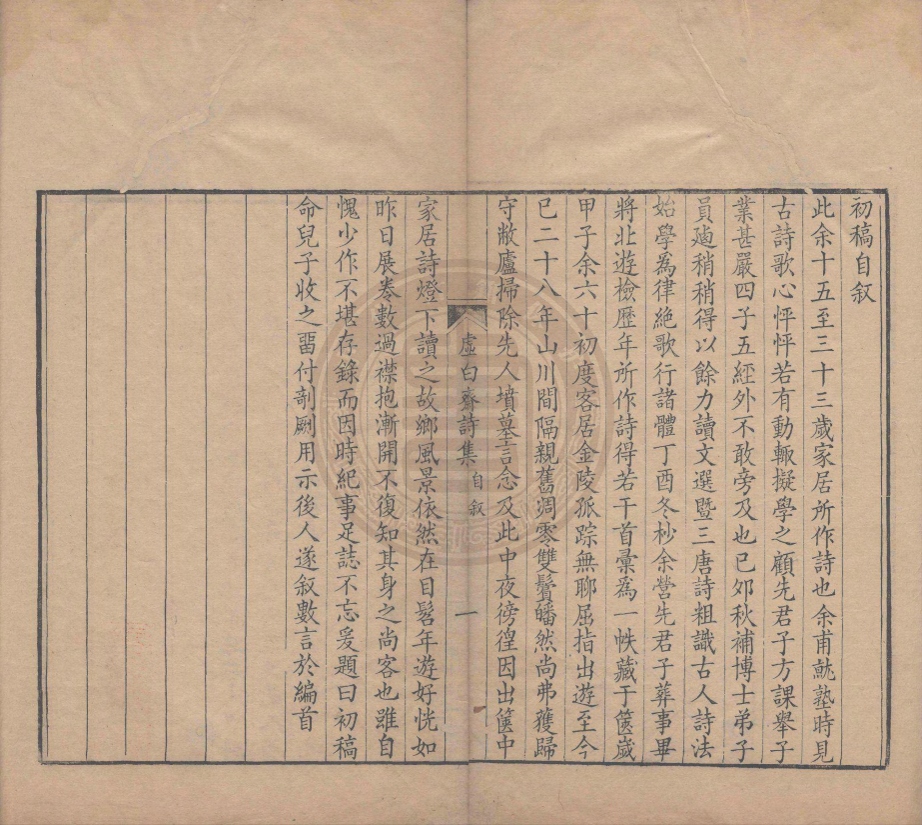 初稿自叙
此余十五至三十三歲家居所作詩也余甫就塾時見
古詩歌心怦怦若有動輙擬學之顧先君子方課舉子
業甚嚴四子五經外不敢旁及也已夘秋補博士弟子
員廼稍稍得以餘力讀文選曁三唐詩粗識古人詩法
始學爲律絶歌行諸體丁酉冬杪余營先君子葬事畢
將北遊檢歷年所作詩得若干首彙爲一帙藏于篋嵗
甲子余六十初度客居金陵孤踪無聊屈指出遊至今
已二十八年山川間隔親舊凋零雙鬢皤然尚弗獲歸
守敝廬掃除先人墳墓言念及此中夜徬徨因出篋中
虛白齋詩集 自叙 一
家居詩燈下讀之故鄉風景依然在目髫年遊好恍如
昨日展卷數過襟抱漸開不復知其身之尚客也雖自
愧少作不堪存錄而因時紀事足誌不忘爰題曰初稿
命兒子收之畱付剞劂用示後人遂叙數言於編首